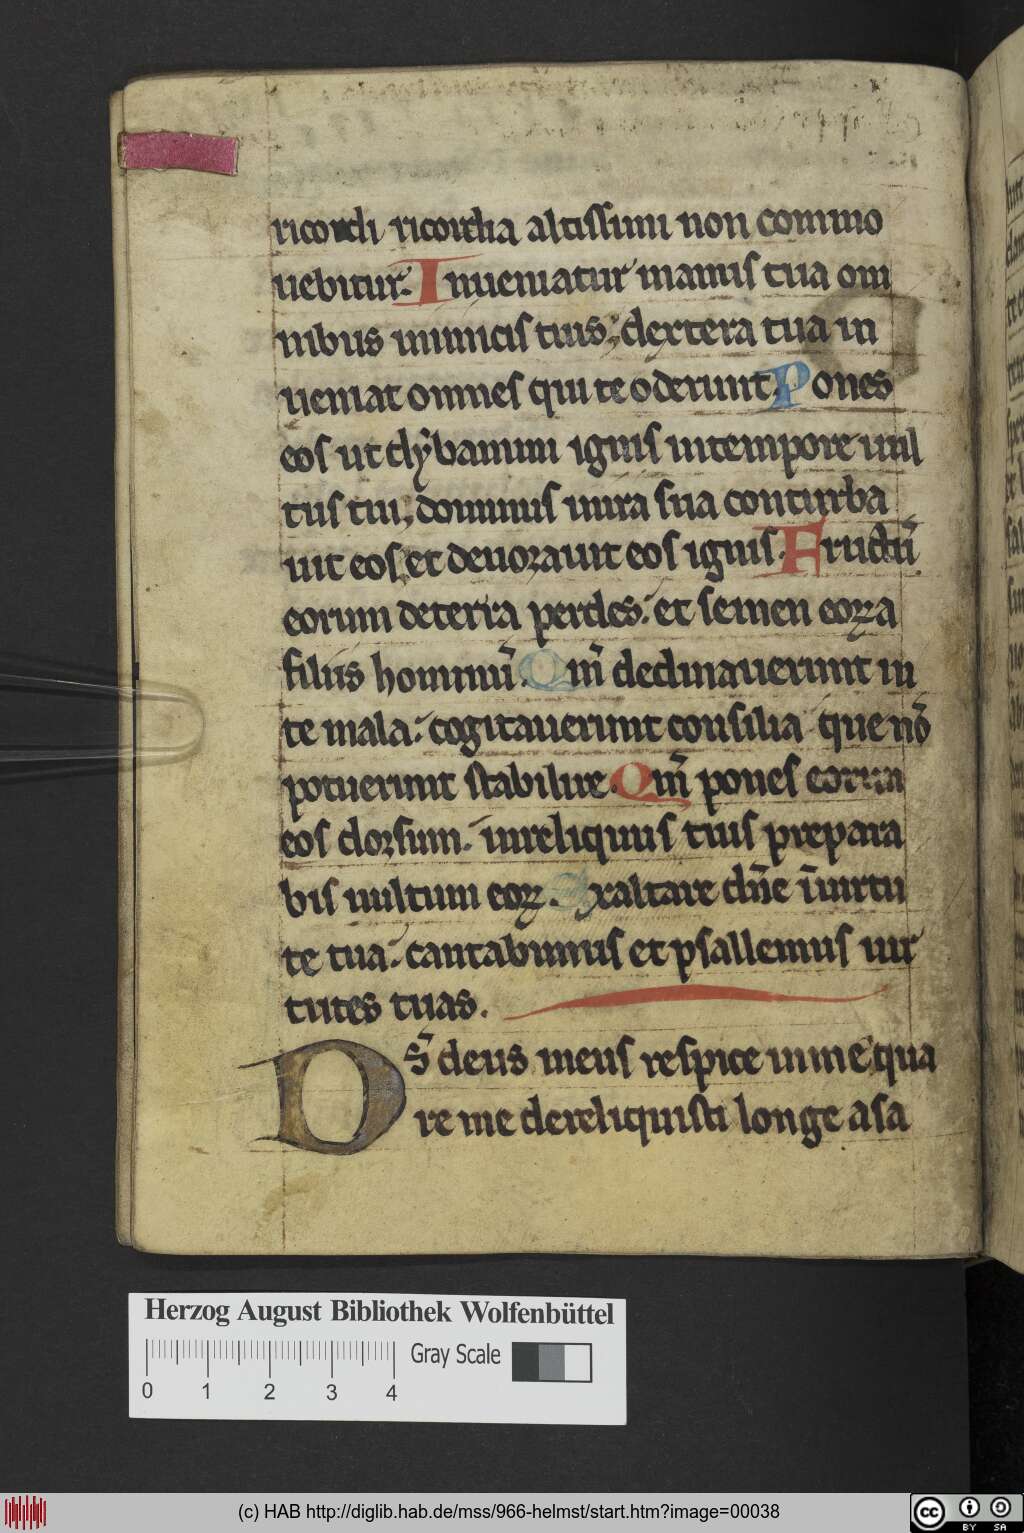 ricordi ricordia altissimi non commo
uebitur. Inueniatur manus tua om
nibus inimicis tuis, dextera tua in
ueniat omnes qui te oderunt. Pones
eos ut clẏbanum ignis intempore uul
tus tui, dominus inira sua conturba
uit eos et deuorauit eos ignis. Fructū
eorum deterra perdes. et semen eoꝝ a
filiis hominū. Qm̄ declinauerunt in
te mala. cogitauerunt consilia que nō
potuerunt stabilire. Qm̄ pones
eos dorsum. inreliquiis tuis prepara
bis uultum eoꝝ. Exaltare dn̄e īuirtu
te tua. cantabimus et psallemus uir
tutes tuas.
Ds̄ deus meus respice inme qua
re me dereliquisti longe asa
Herzog August Bibliothek Wolfenbüttel
Gray Scale
0 1 2 3 4
(c) HAB http://diglib.hab.de/mss/966-helmst/start.htm?image=00038
cc BY SA